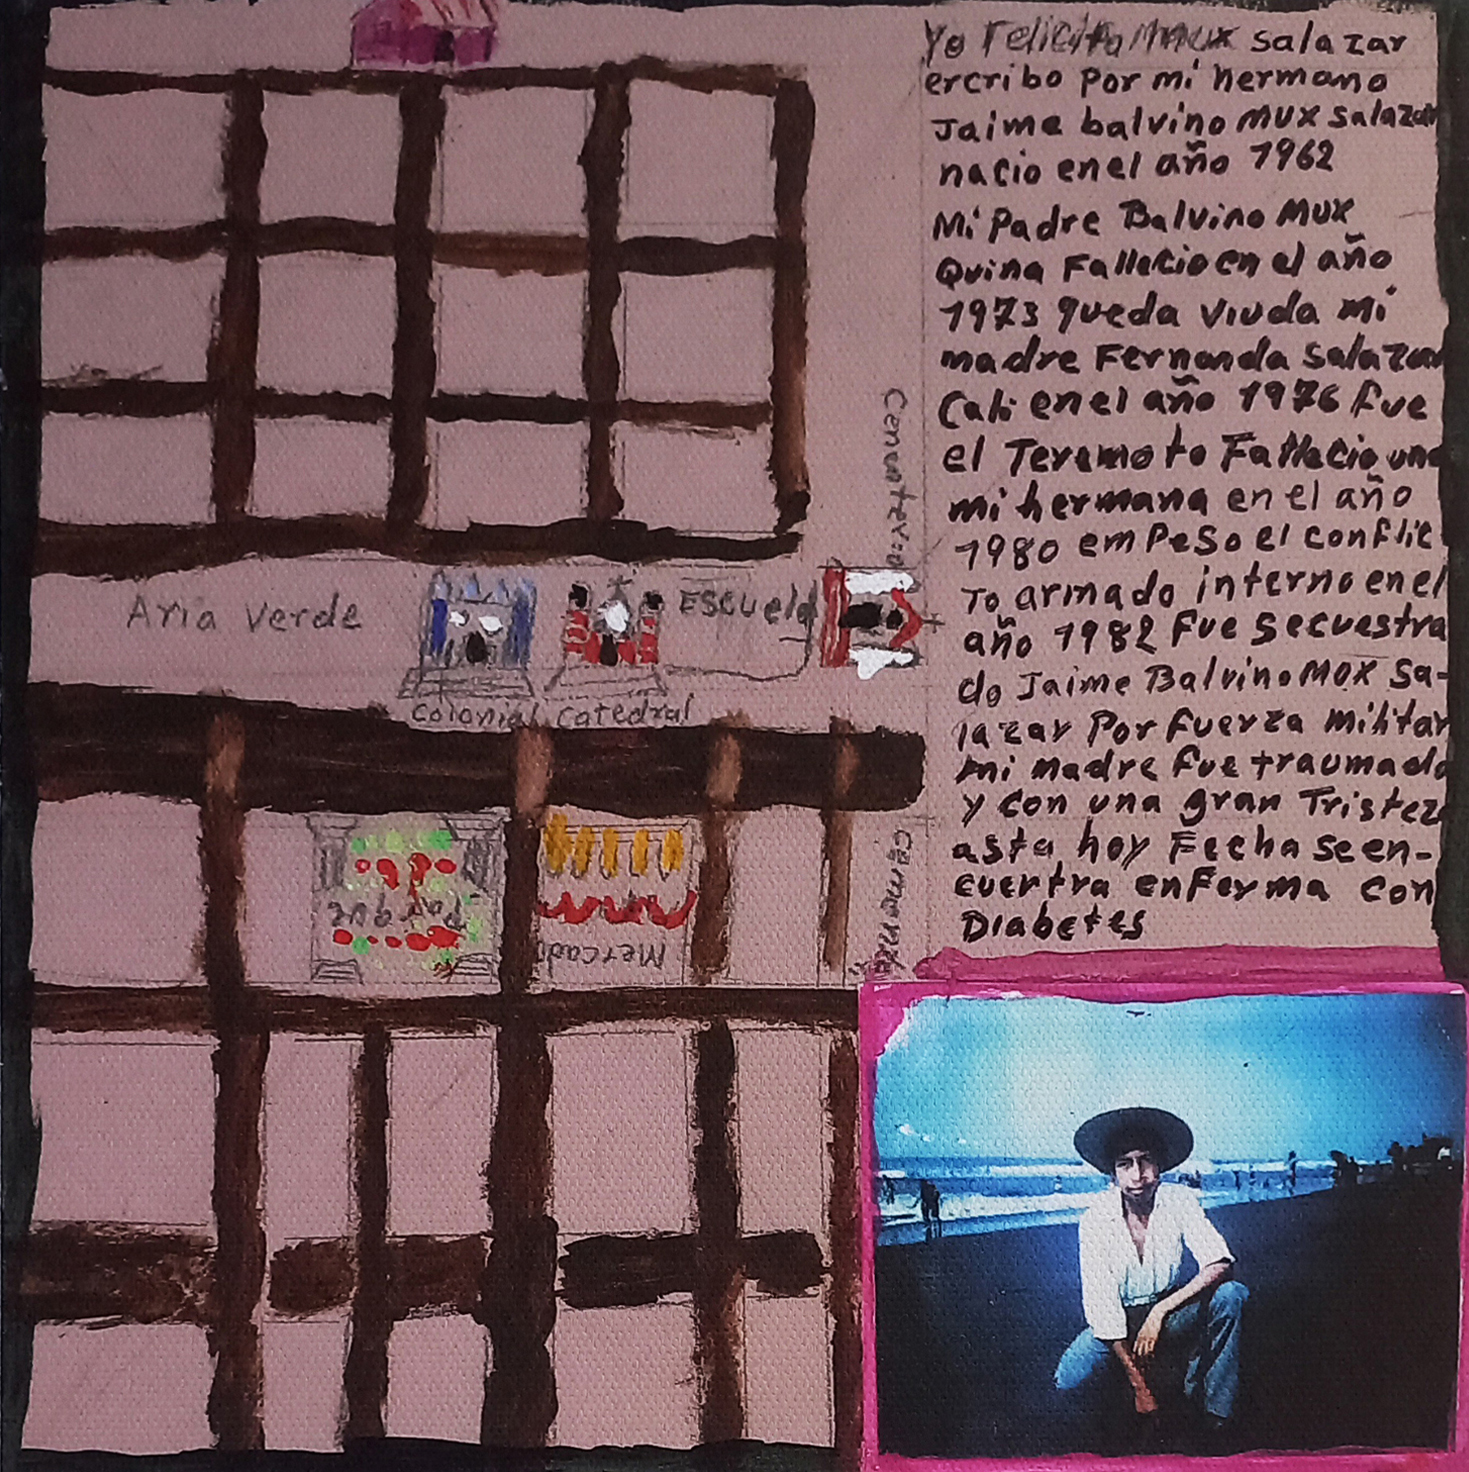 Yo Felicita Mux salazar
ercribo por mi hermano
Jaime balvino mux salazar
nacio en el año 1962
Mi Padre Balvino Mux
Quina Fallecio en el año
1973 queda viuda mi
madre Fernanda Salazar
Cali en el año 1976 fue
el Teremoto Fallecio una
mi hermana en el año
1980 em Peso el conflic
To armado interno en el
año 1982 fue secuestra
do Jaime Balvino Mux Sa-
lazar Por fuerza militar
mi madre fue traumada
y con una gran Tristez
asta hoy Fecha se en-
cuertra enferma con
Diabetes
Aria Verde
ESCUela
colonial catedral
Parque
Mercado